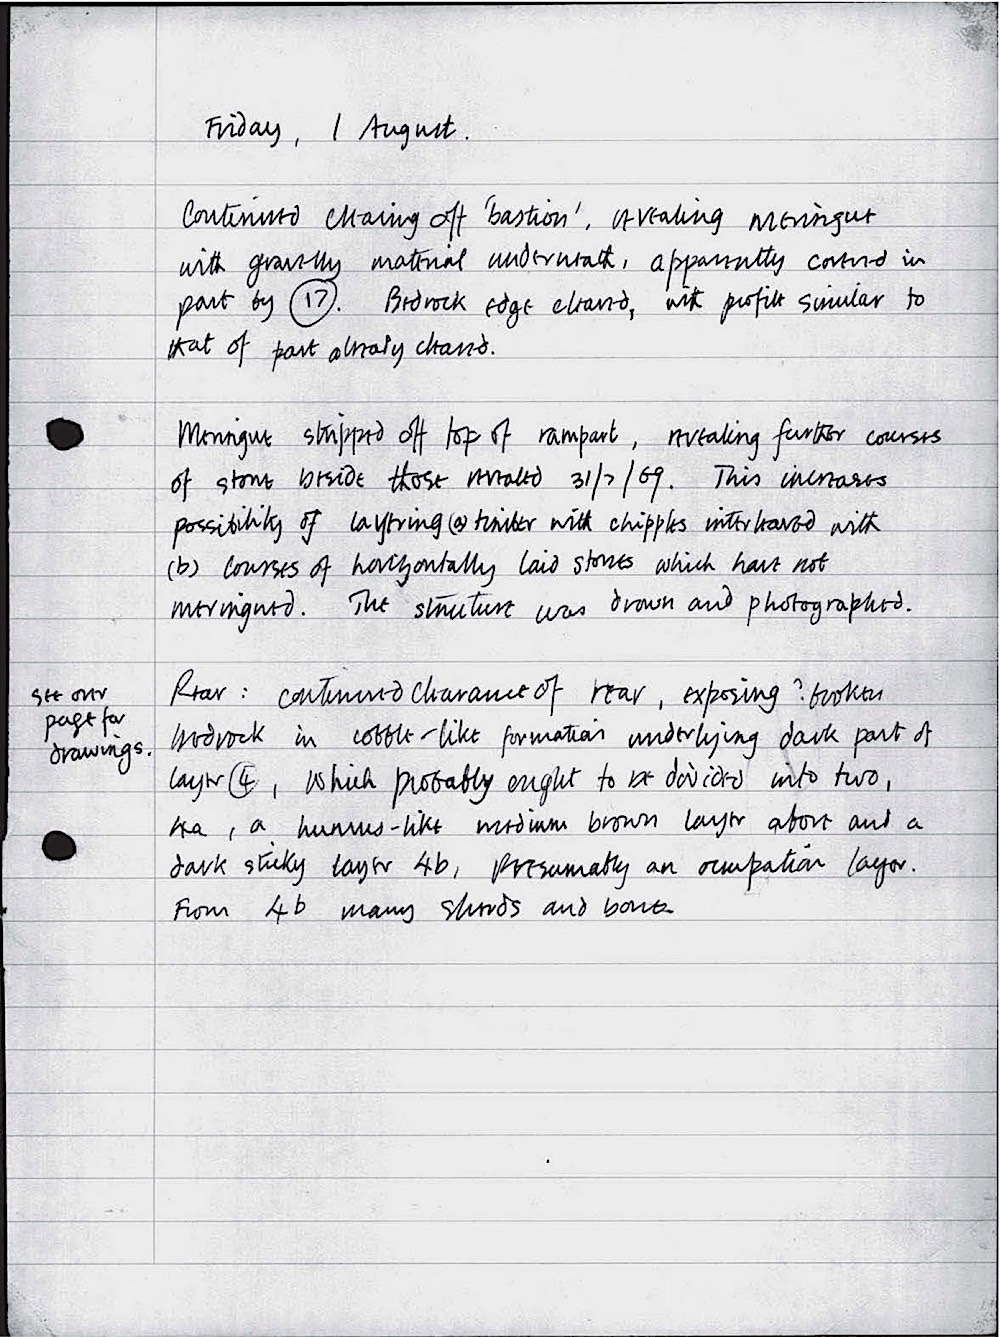 Friday, 1 August.
Continued clearing off 'bastion', revealing meringue
with gravelly material underneath, apparently covered in
part by (17). Bedrock edge cleared, with profile similar to
that of part already cleared.
Meringue stripped off top of rampart, revealing further courses
of stone beside those revealed 31/7/69. This increases
possibility of layering (a) timber with chipples interleaved with
(b) courses of horizontally laid stones which have not
meringued. The structure was drawn and photographed.
see over
page for
drawings.
Rear: continued clearance of rear, exposing ? broken
bedrock in cobble-like formation underlying dark part of
layer (4), which probably ought to be divided into two,
4a, a humus-like medium brown layer above and a
dark sticky layer 4b, presumably an occupation layer.
From 4b many sherds and bones